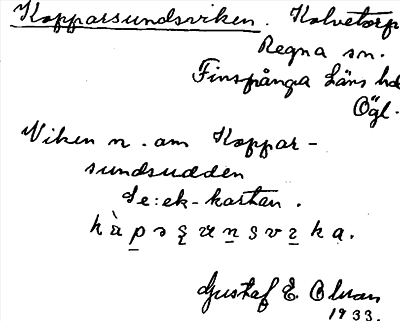 Kopparsundsviken. Kalvetorp
Regna sn.
Finspånga läns hd
Ögl.
Viken n. om Koppar-
sundsudden
Se: ek-kartan.
Gustaf E. Olsson
1933.